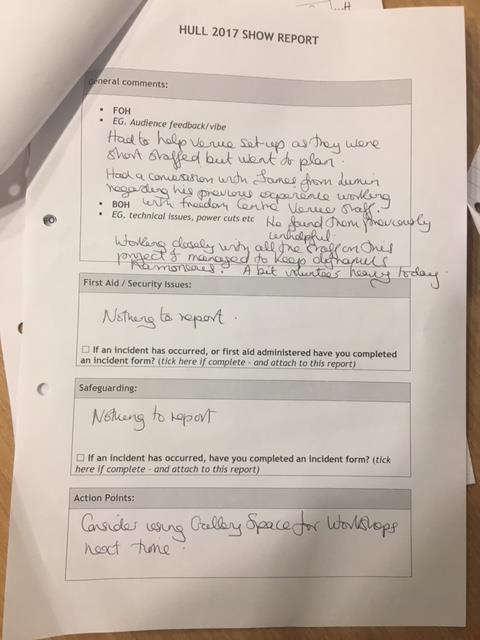 HULL 2017 SHOW REPORT
General comments:
• FOH
• EG. Audience feedback/vibe
Had to help venue set-up as they were
short staffed but went to plan.
Had a conversation with James from Lumin
regarding his previous experience working
• BOH with Freedom Centre Venue Staff.
• EG. technical issues, power cuts etc He found them previously
unhelpful
Working closely with all the staff on this
project & managed to keep dynamics
harmonious. A bit volunteer heavy today.
First Aid / Security Issues:
Nothing to report.
☐ If an incident has occurred, or first aid administered have you completed
an incident form? (tick here if complete - and attach to this report)
Safeguarding:
Nothing to report
☐ If an incident has occurred, have you completed an incident form? (tick
here if complete - and attach to this report)
Action Points:
Consider using Gallery Space for Workshops
next time.